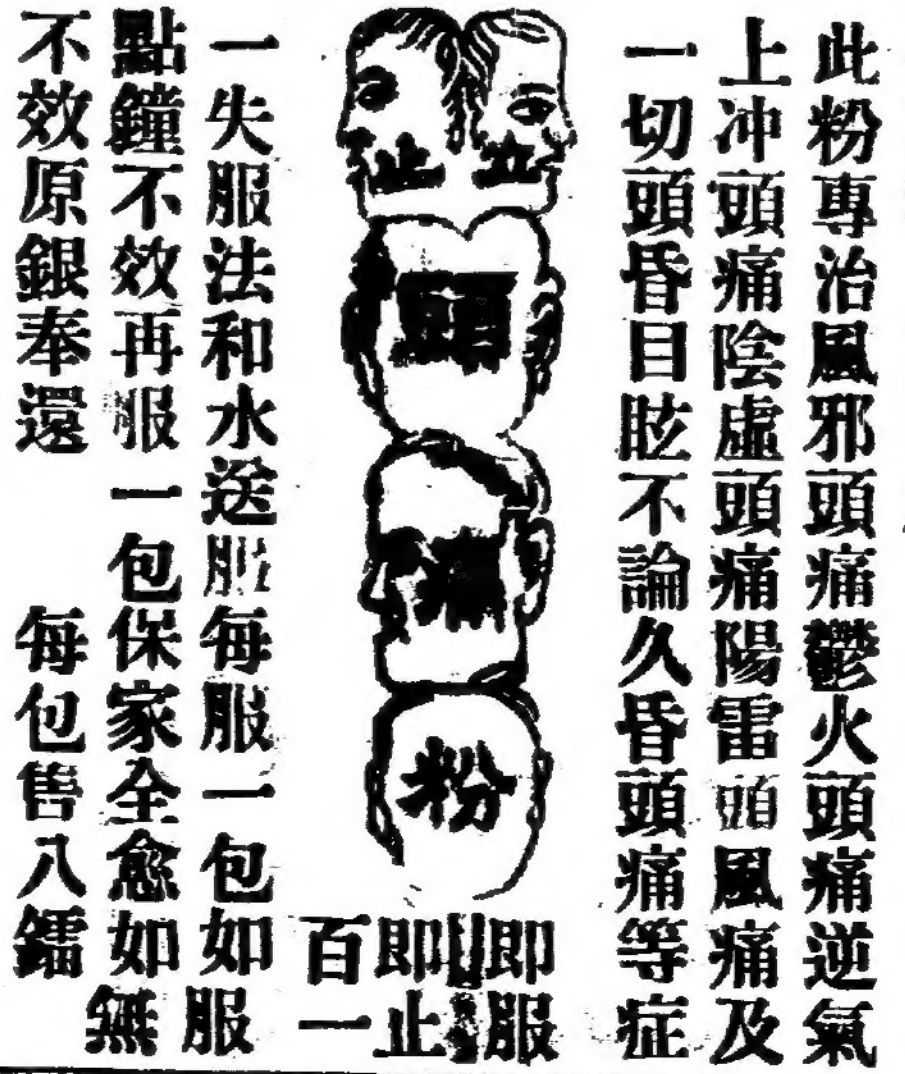 此粉專治風邪頭痛鬱火頭痛逆氣
上冲頭痛陰虛頭痛陽雷頭風痛及
一切頭昏目眩不論久昏頭痛等症
立止頭粉
即服
即止
百一
一失服法和水送服每服一包如服
點鐘不效再服一包保家全愈如無
不效原銀奉還 每包售八鐳